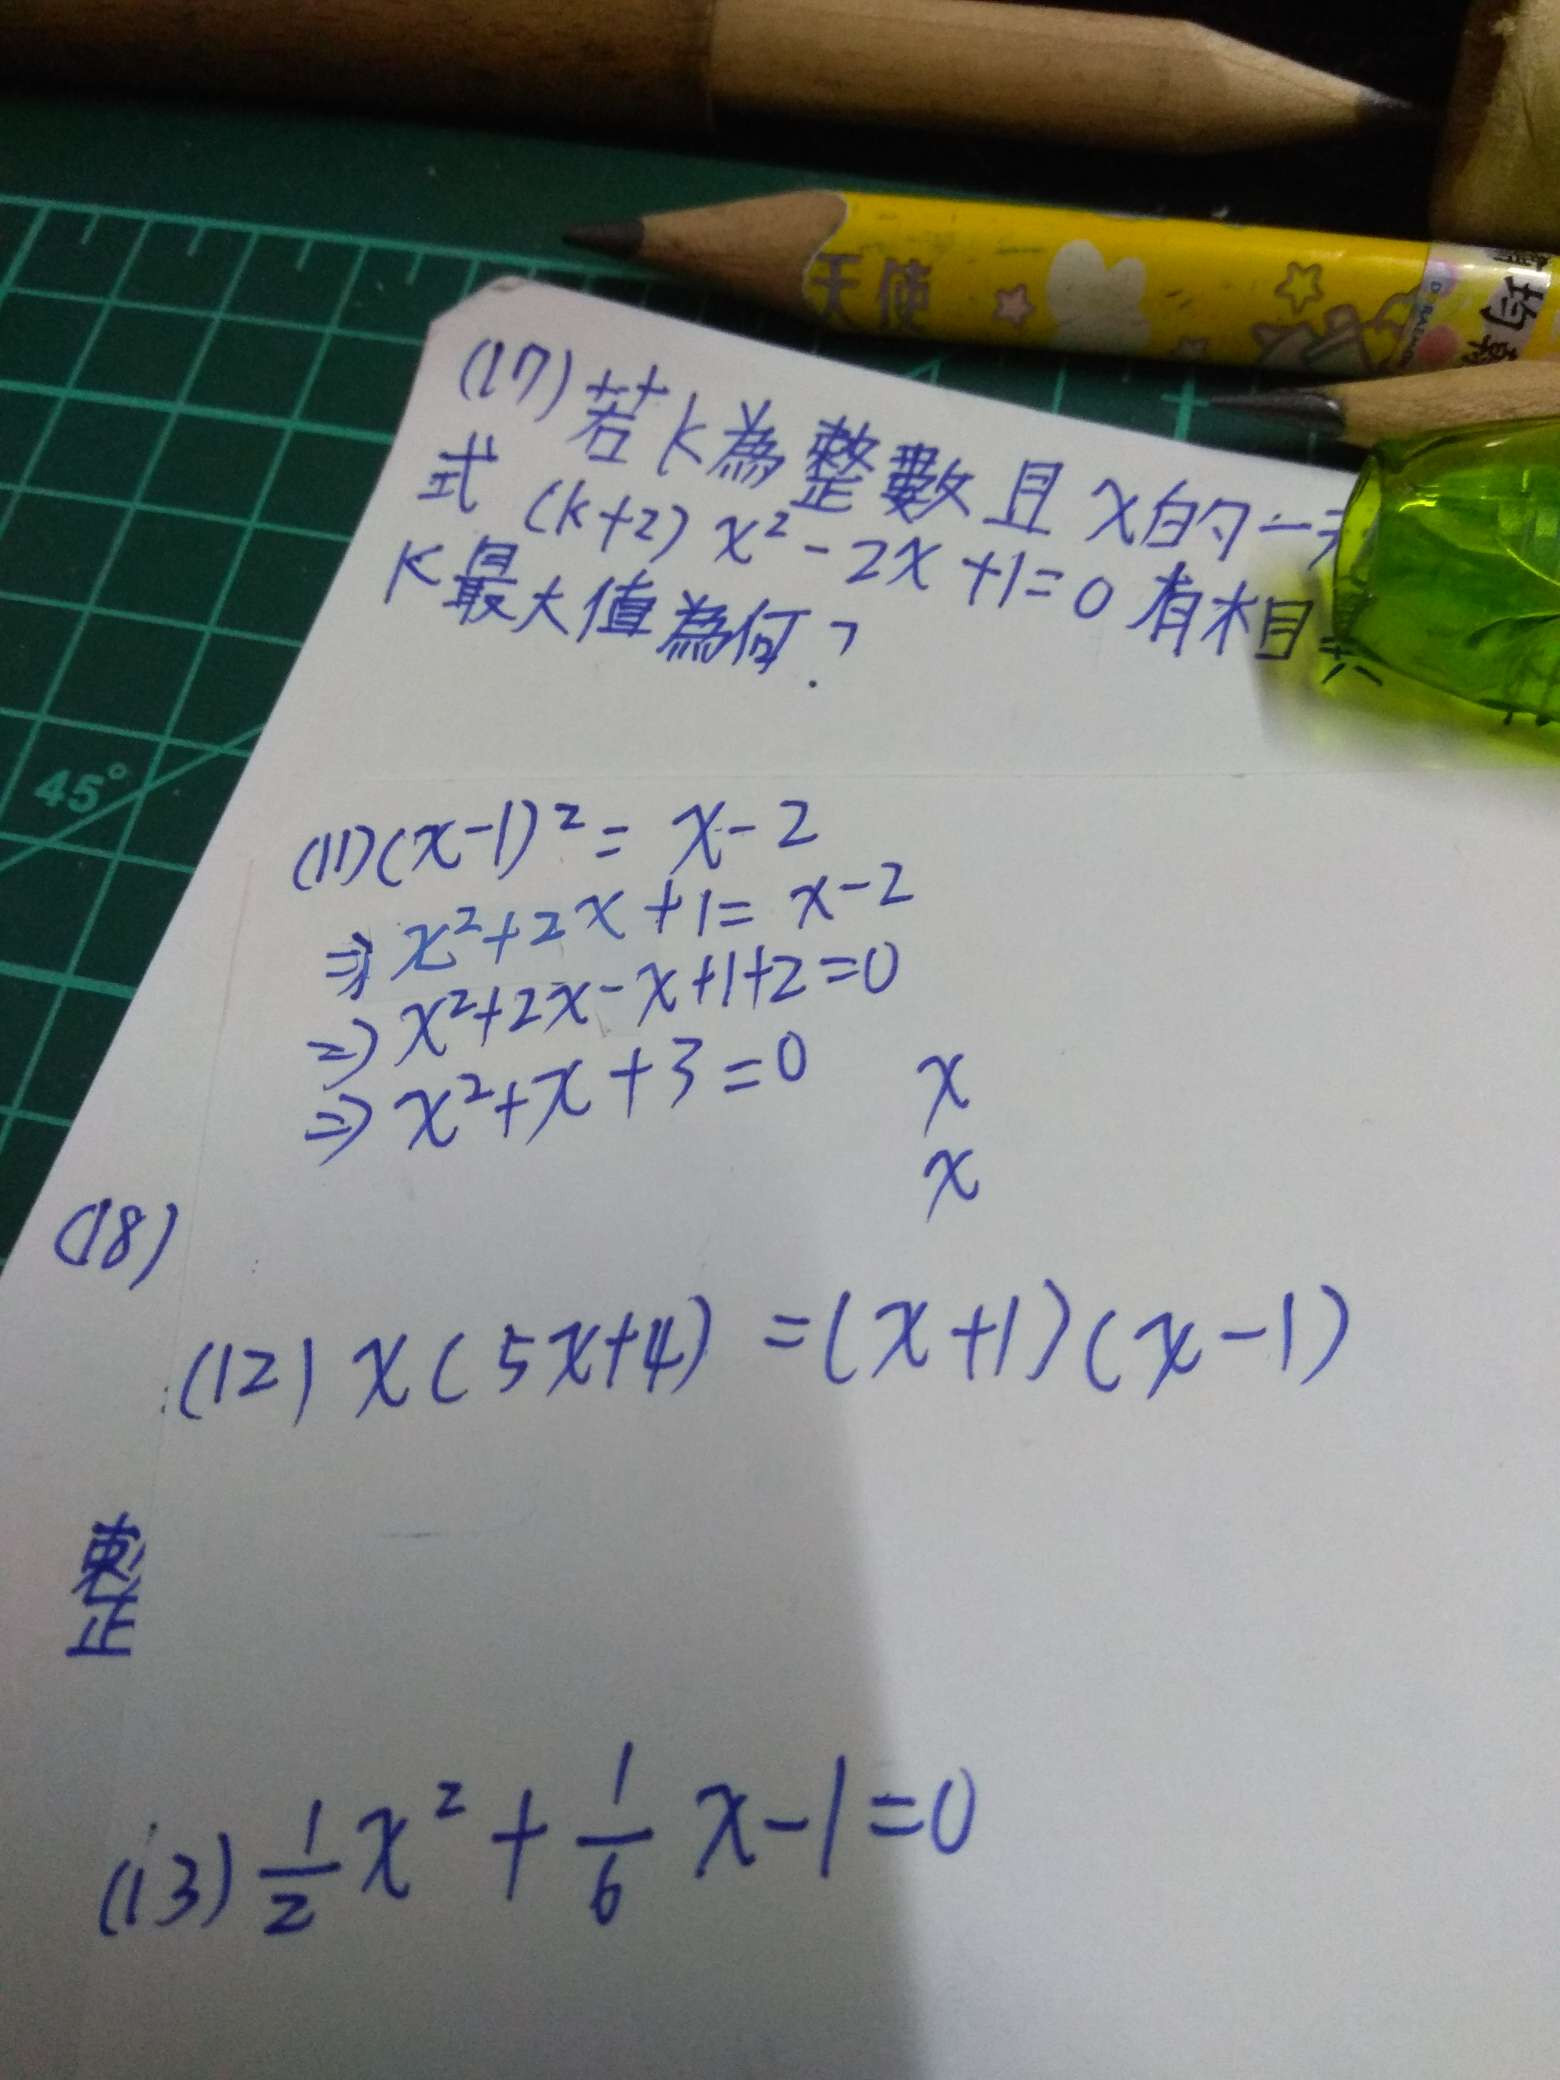 天使
45°
(17) 若k為整數且x的一
式 (k+2) x² - 2x + 1 = 0 有相
k最大值為何?
(11) (x-1)² = x-2
⇒ x²+2x+1 = x-2
⇒ x²+2x-x+1+2=0
⇒ x²+x+3=0 x
x
(18)
(12) x(5x+4) = (x+1)(x-1)
整
(13) 1/2 x² + 1/6 x - 1 = 0